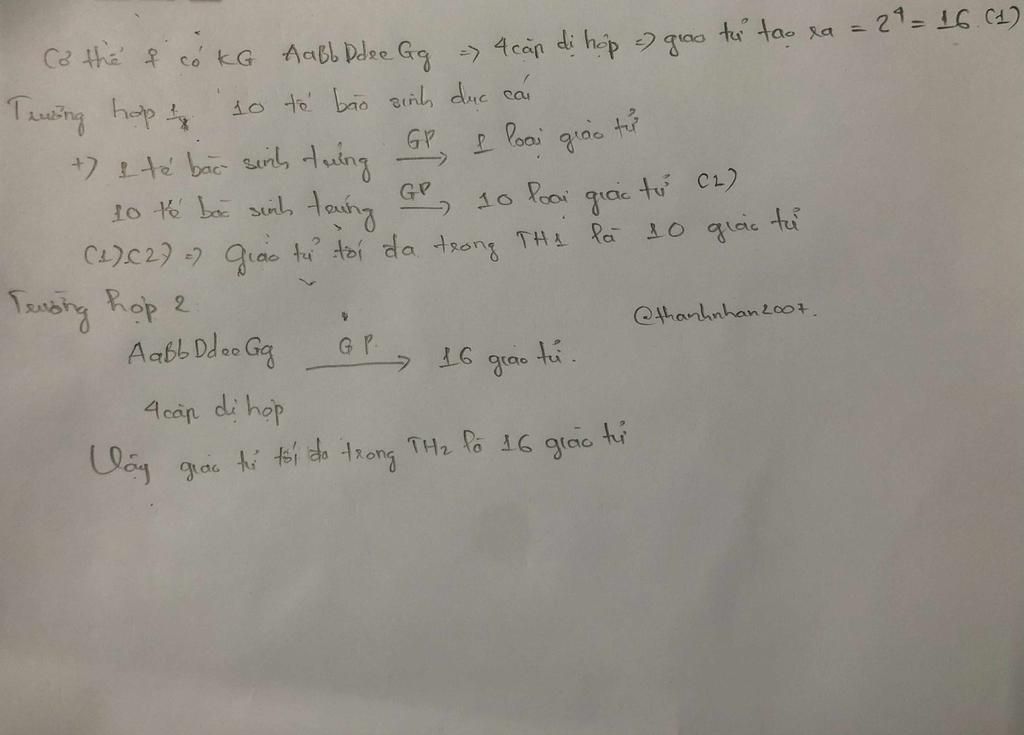 Cơ thể ♀ có KG AaBbDdeeGg => 4 cặp dị hợp => giao tử tạo ra = 2⁴ = 16 (1)
Trường hợp 1 10 tế bào sinh dục cái
+) 1 tế bào sinh trứng GP→ 1 loại giao tử
10 tế bào sinh trứng GP→ 10 loại giao tử (2)
(1)(2) => Giao tử tối đa trong TH1 là 10 giao tử
Trường hợp 2
@thanhnhan2007.
AaBbDdeeGg GP→ 16 giao tử.
4 cặp dị hợp
Vậy giao tử tối đa trong TH2 là 16 giao tử